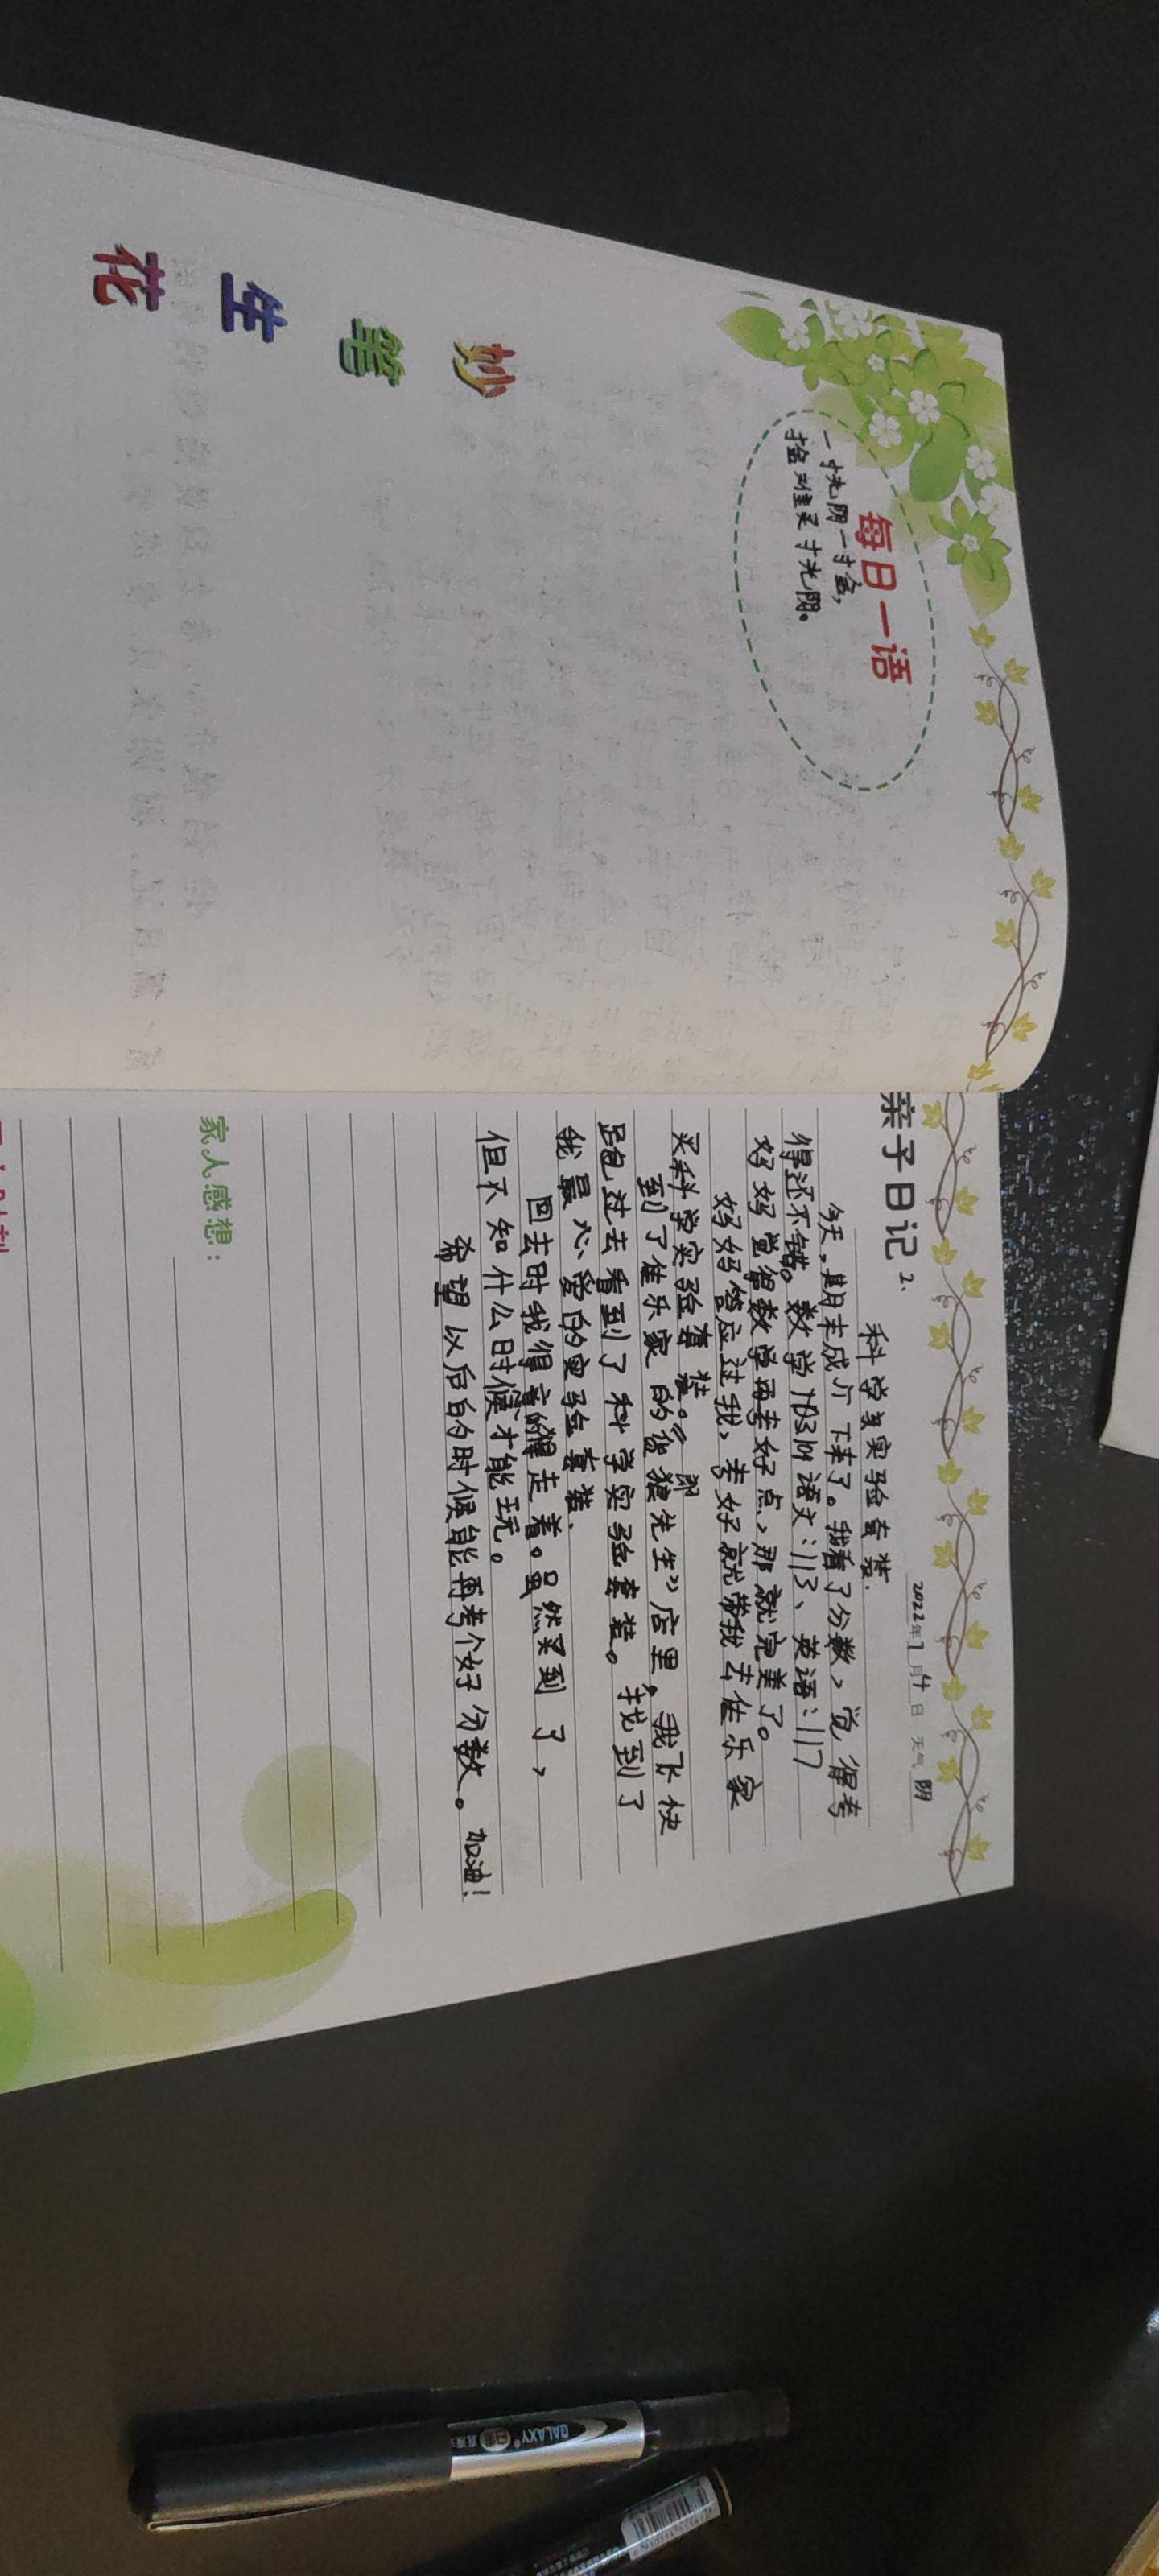 每日一语
一寸光阴一寸金，
寸金难买寸光阴。
妙
笔
生
花
亲子日记 2、
2022年7月4日 天气 阴
科学实验套装.
今天，期末成 下来了。我看了分数，觉得考
得还不错。数学 语文：113、英语：117
妈妈觉得数学再考好点，那就完美了。
妈妈答应过我，考好就带我去佳乐家
买科学实验套装。
到了佳乐家的 狼先生》店里，我飞快
跑过去看到了科学实验套装。找到了
我最心爱的实验套装、
回去时我得意的 走着。虽然买到了，
但不知什么时候才能玩。
希望以后的时候能再考个好分数。加油！
家人感想：
GALAXY